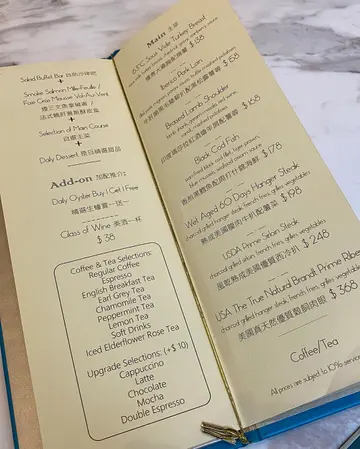 Salad Buffet Bar 自助沙律吧
+
Smoke Salmon Mille-Feuille /
Foie Gras Mousse Vol-Au-Vent
煙三文魚拿破崙 /
法式鵝肝醬脆酥皮盒
+
Selection of Main Course
自選主菜
+
Daily Dessert 是日精選甜品
Add-on 加配推介:
Daily Oyster Buy 1 Get 1 Free
精選生蠔買一送一
Glass of Wine 美酒一杯
$ 38
Coffee & Tea Selections:
Regular Coffee
Espresso
English Breakfast Tea
Earl Grey Tea
Chamomile Tea
Peppermint Tea
Lemon Tea
Soft Drinks
Iced Elderflower Rose Tea
Upgrade Selections: (+$ 10)
Cappuccino
Latte
Chocolate
Mocha
Double Espresso
Main 主菜
63°C Sous Vide Turkey Breast
$ 138
Iberico Pork Loin
$ 158
Braised Lamb Shoulder
$ 168
Black Cod Fish
$ 178
Wet Aged 60 Days Hanger Steak
charcoal grilled hanger steak, french fries, grilles vegetables
熟成美國牛肉扒配薯菜 $ 198
USDA Prime Sirloin Steak
charcoal grilled sirloin, french fries, grilles vegetables
風乾熟成美國優質西冷扒 $ 248
USA The True Natural Brandt Prime Ribeye
charcoal grilled hanger steak, french fries, grilles vegetables
美國真天然優質穀飼肉眼 $ 368
Coffee/Tea
All prices are subject to 10% service